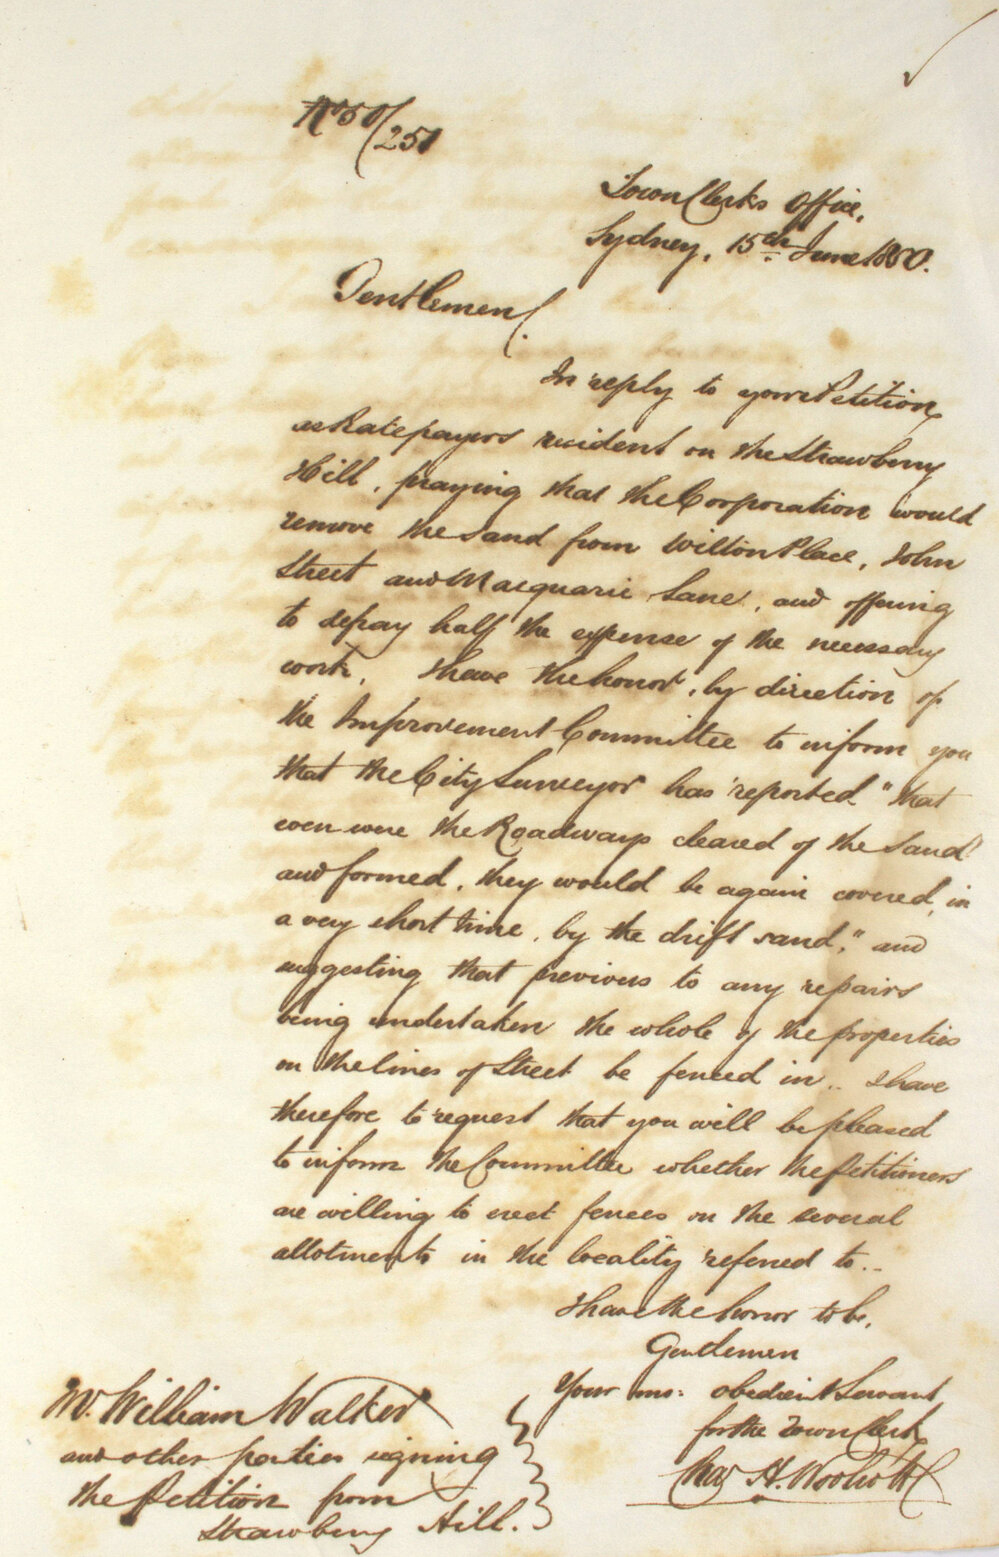 No 50/251
Town Clerks Office,
Sydney, 15th June 1850.
Gentlemen,
In reply to your Petition,
as Ratepayers resident on the Strawberry
Hill, praying that the Corporation would
remove the sand from Wilton Place, John
Street and Macquarie Lane, and offering
to defray half the expense of the necessary
work, I have the honor, by direction of
the Improvement Committee to inform you
that the City Surveyor has reported "that
even were the Roadways cleared of the sand
and formed, they would be again covered, in
a very short time, by the drift sand," and
suggesting that previous to any repairs
being undertaken the whole of the properties
on the lines of Street be fenced in.. I have
therefore to request that you will be pleased
to inform the Committee whether the Petitioners
are willing to erect fences on the several
allotments in the locality referred to..
I have the honor to be,
Gentlemen
Your mo: obedient Servant
for the Town Clerk
Chas H. Woolcott
Mr. William Walker
and other parties signing
the Petition from
Strawberry Hill.